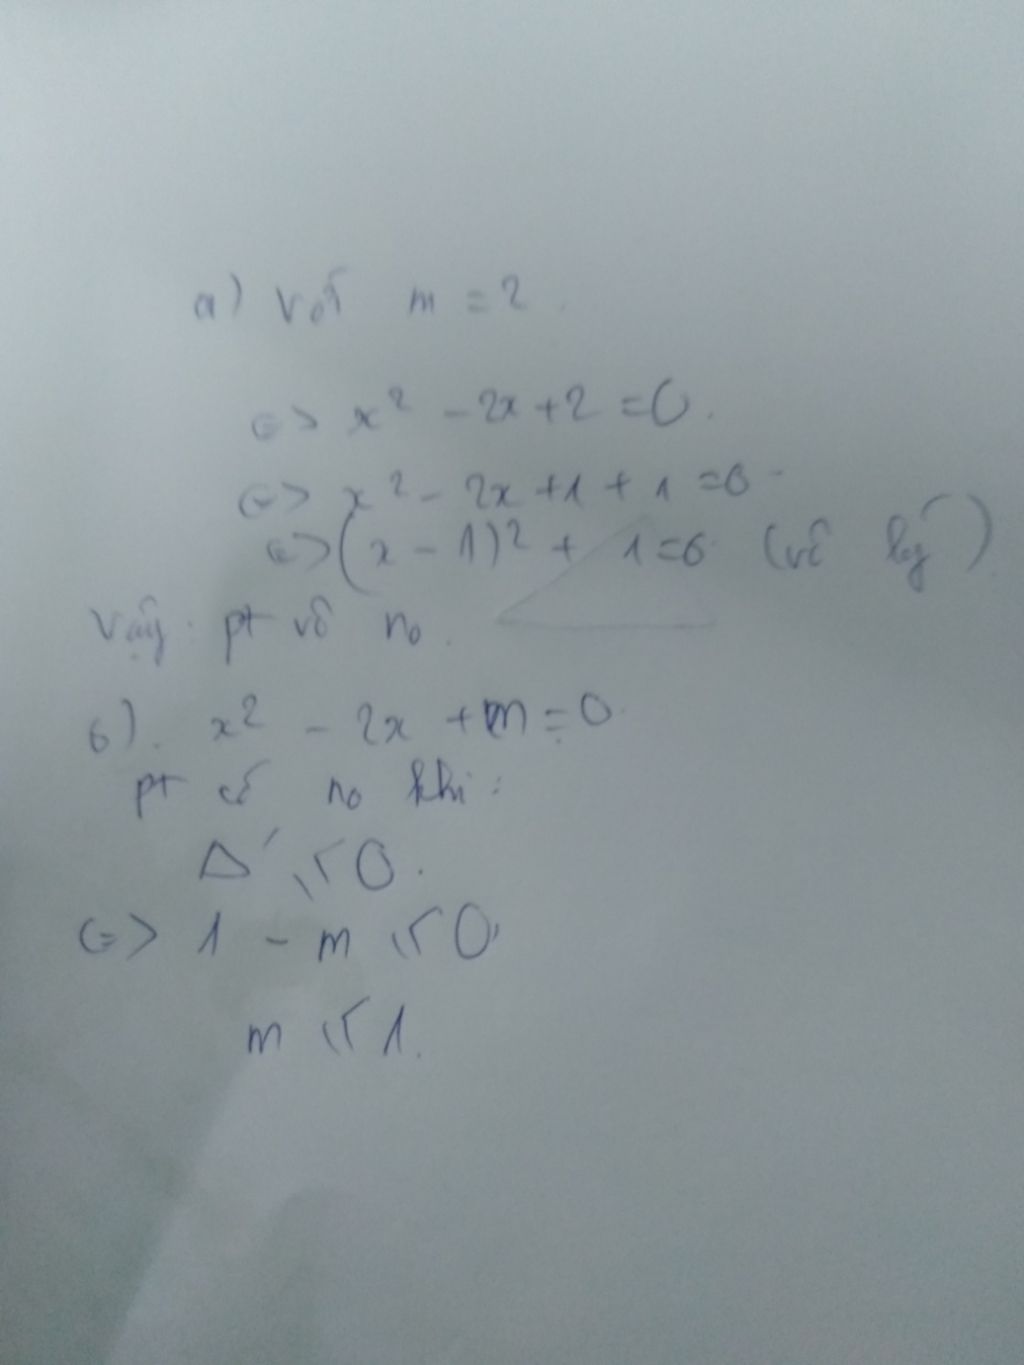 a) Với m = 2.
<=> x² - 2x + 2 = 0.
<=> x² - 2x + 1 + 1 = 0
<=> (x - 1)² + 1 = 0 (vô lý)
Vậy: pt vô no.
b). x² - 2x + m = 0
pt có no khi:
Δ' ⩾ 0.
<=> 1 - m ⩾ 0
m ⩽ 1.